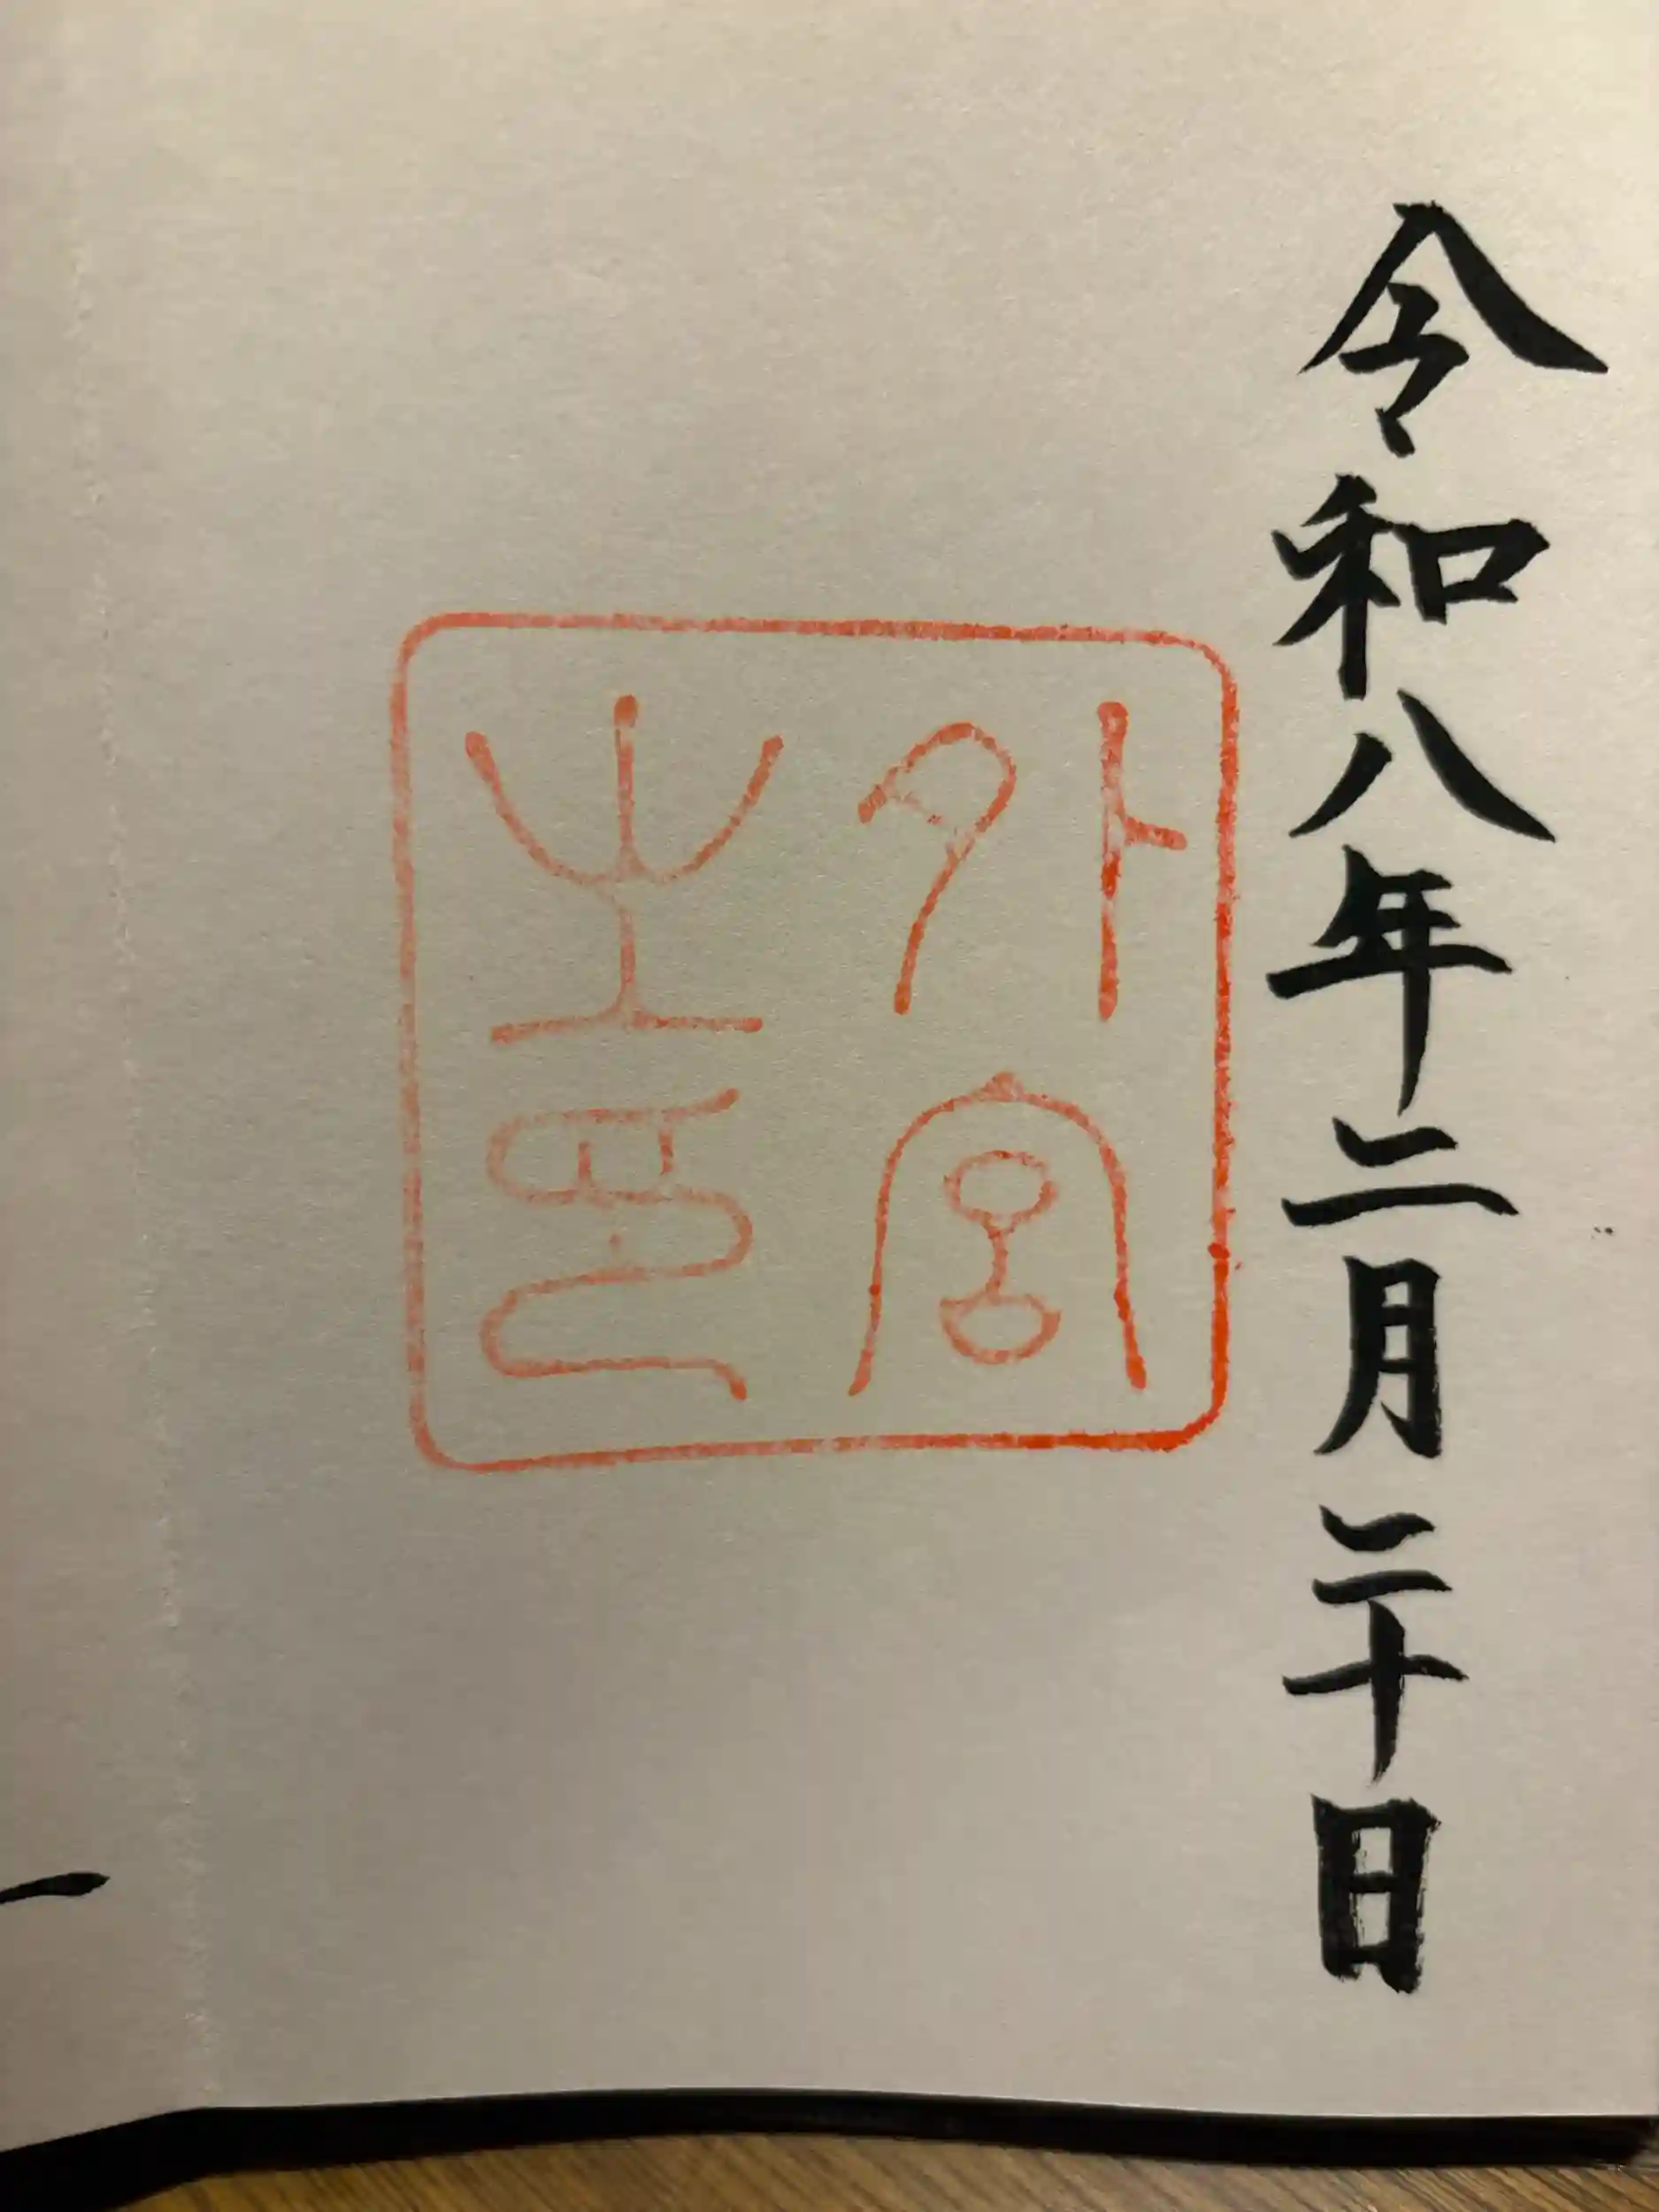 令和八年二月二十日
外宮之印